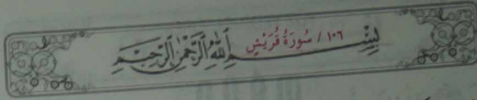 ١٠٦ / سُورَةُ قُرَيْشٍ
بِسْمِ اللَّهِ الرَّحْمَٰنِ الرَّحِيمِ